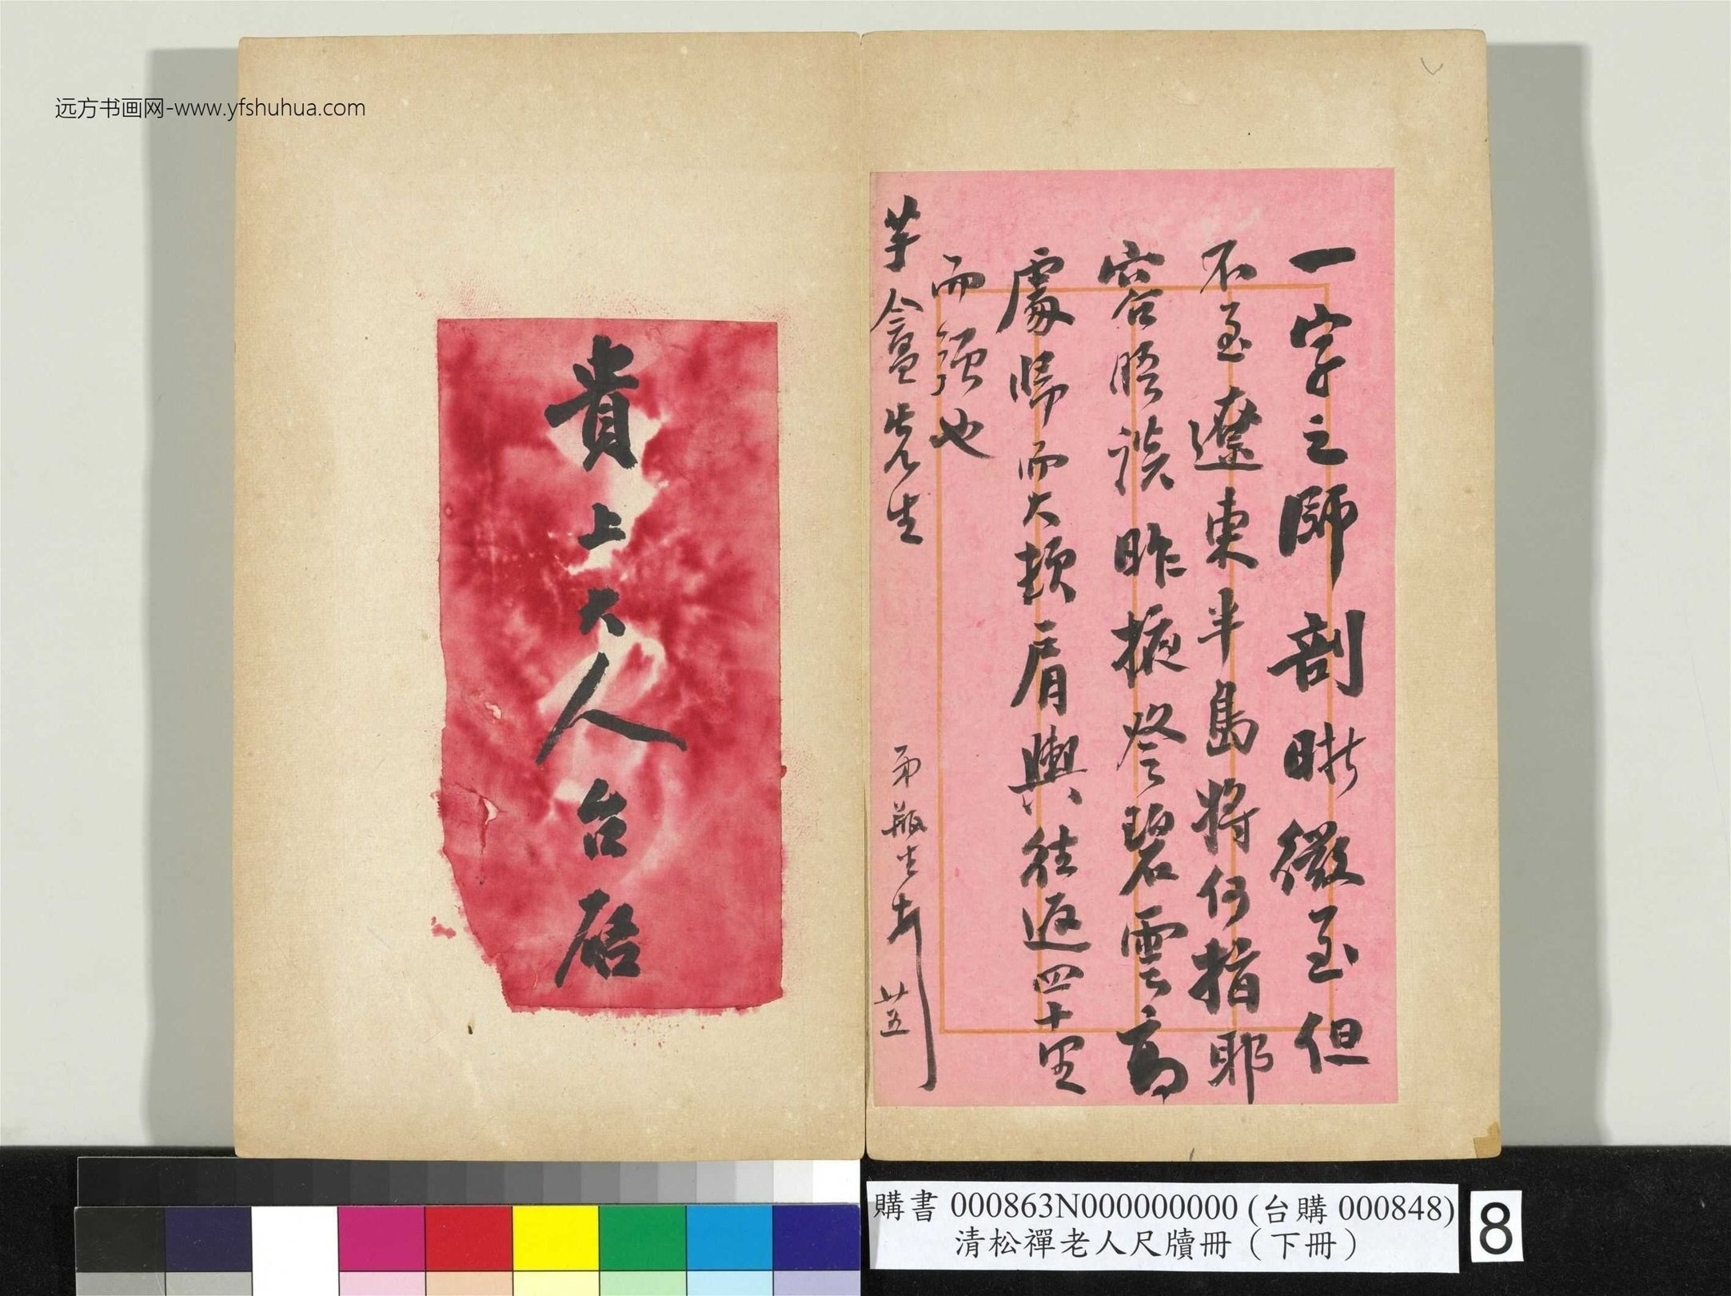 远方书画网-www.yfshuhua.com
一字之師剖晰微至但
不至遼東半島將何指耶
容晤談昨掖登碧雲高
處歸而大頼肩輿往返四十里
而强也
芋盦先生
弟瓶生頓
廿五
貴上大人台啟
購書 000863N000000000 (台購 000848)
清松禪老人尺牘冊（下冊）
8